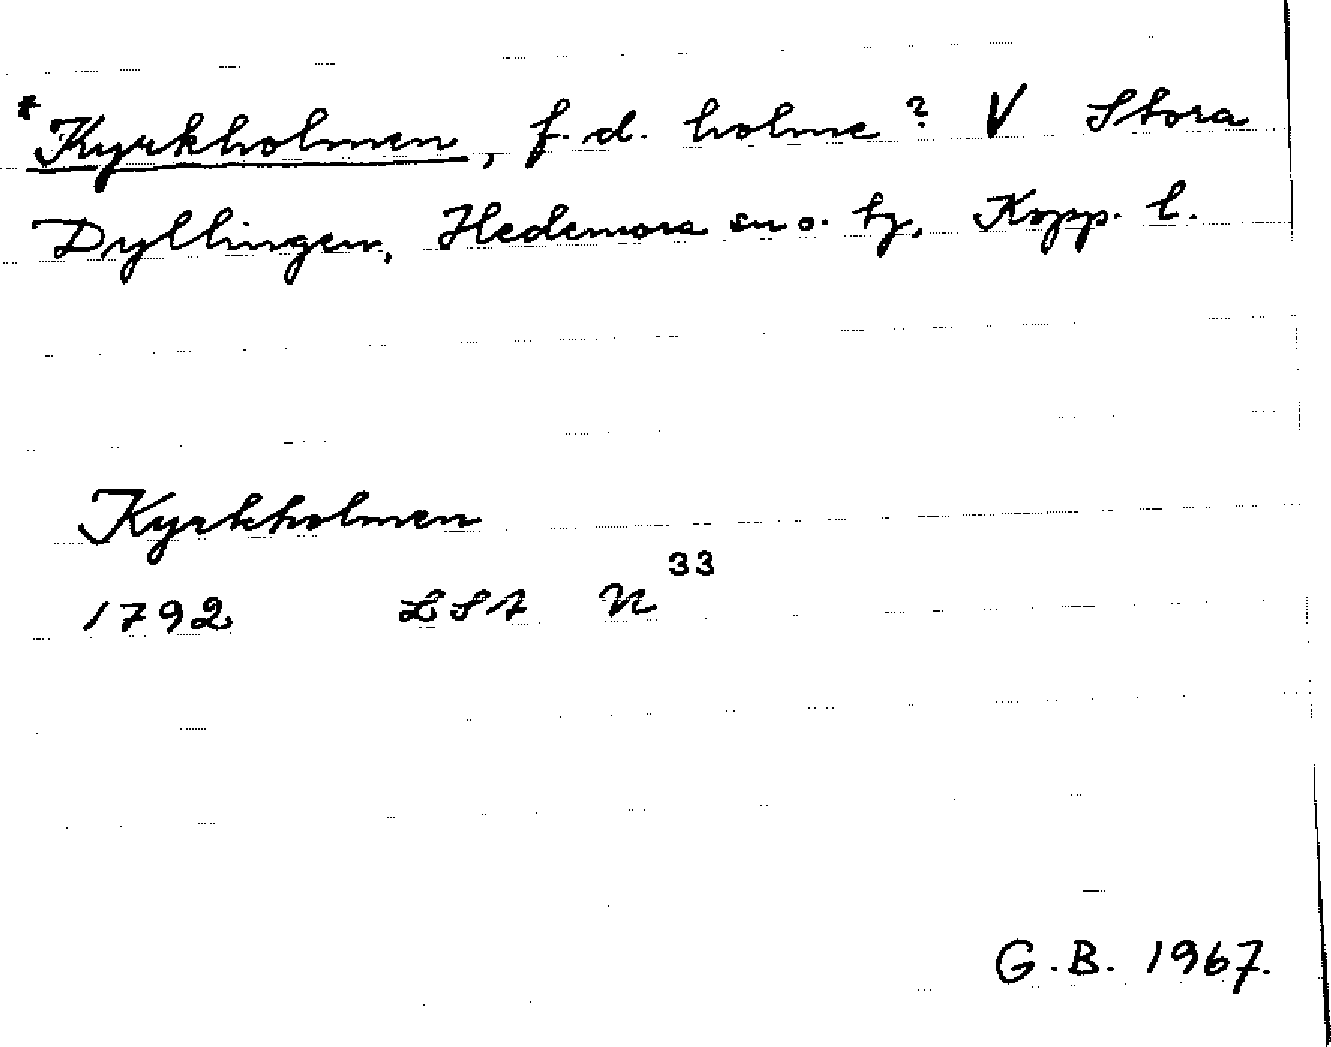 *Kyrkholmen, f.d. holme? V Stora
Dyllingen, Hedemora sn o. tg, Kopp. l.
Kyrkholmen
1792 LSA N³³
G.B. 1967.